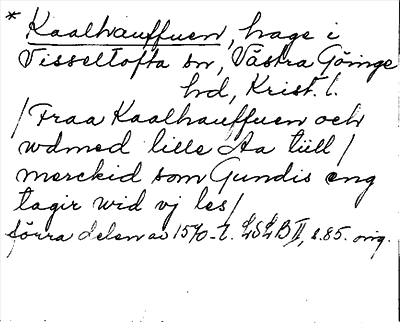 * Kaalhauffuen, hage i
Visseltofta sn, Västra Göinge
hd, Krist. l.
/Fraa Kaalhauffuen och
wdmed lille Aa tüll/
merckid som Gundis eng
tagir wid vj les/
förra delen av 1570-t. LSLB II, s. 85. orig.